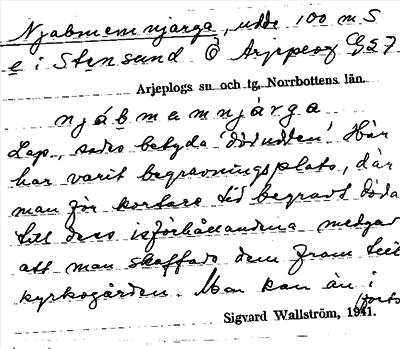 Njabmemnjarga, udde 100 m S
e i Stensund Ö Arjeplog G27
Arjeplogs sn och tg, Norrbottens län.
njábmamnjárga
Lap., sades betyda 'dödudden'. Här
har varit begravningsplats, där
man för kortare tid begravt döda
till dess isförhållandena medgav
att man skaffade dem fram till
kyrkogården. Man kan än i
(forts
Sigvard Wallström, 1941.